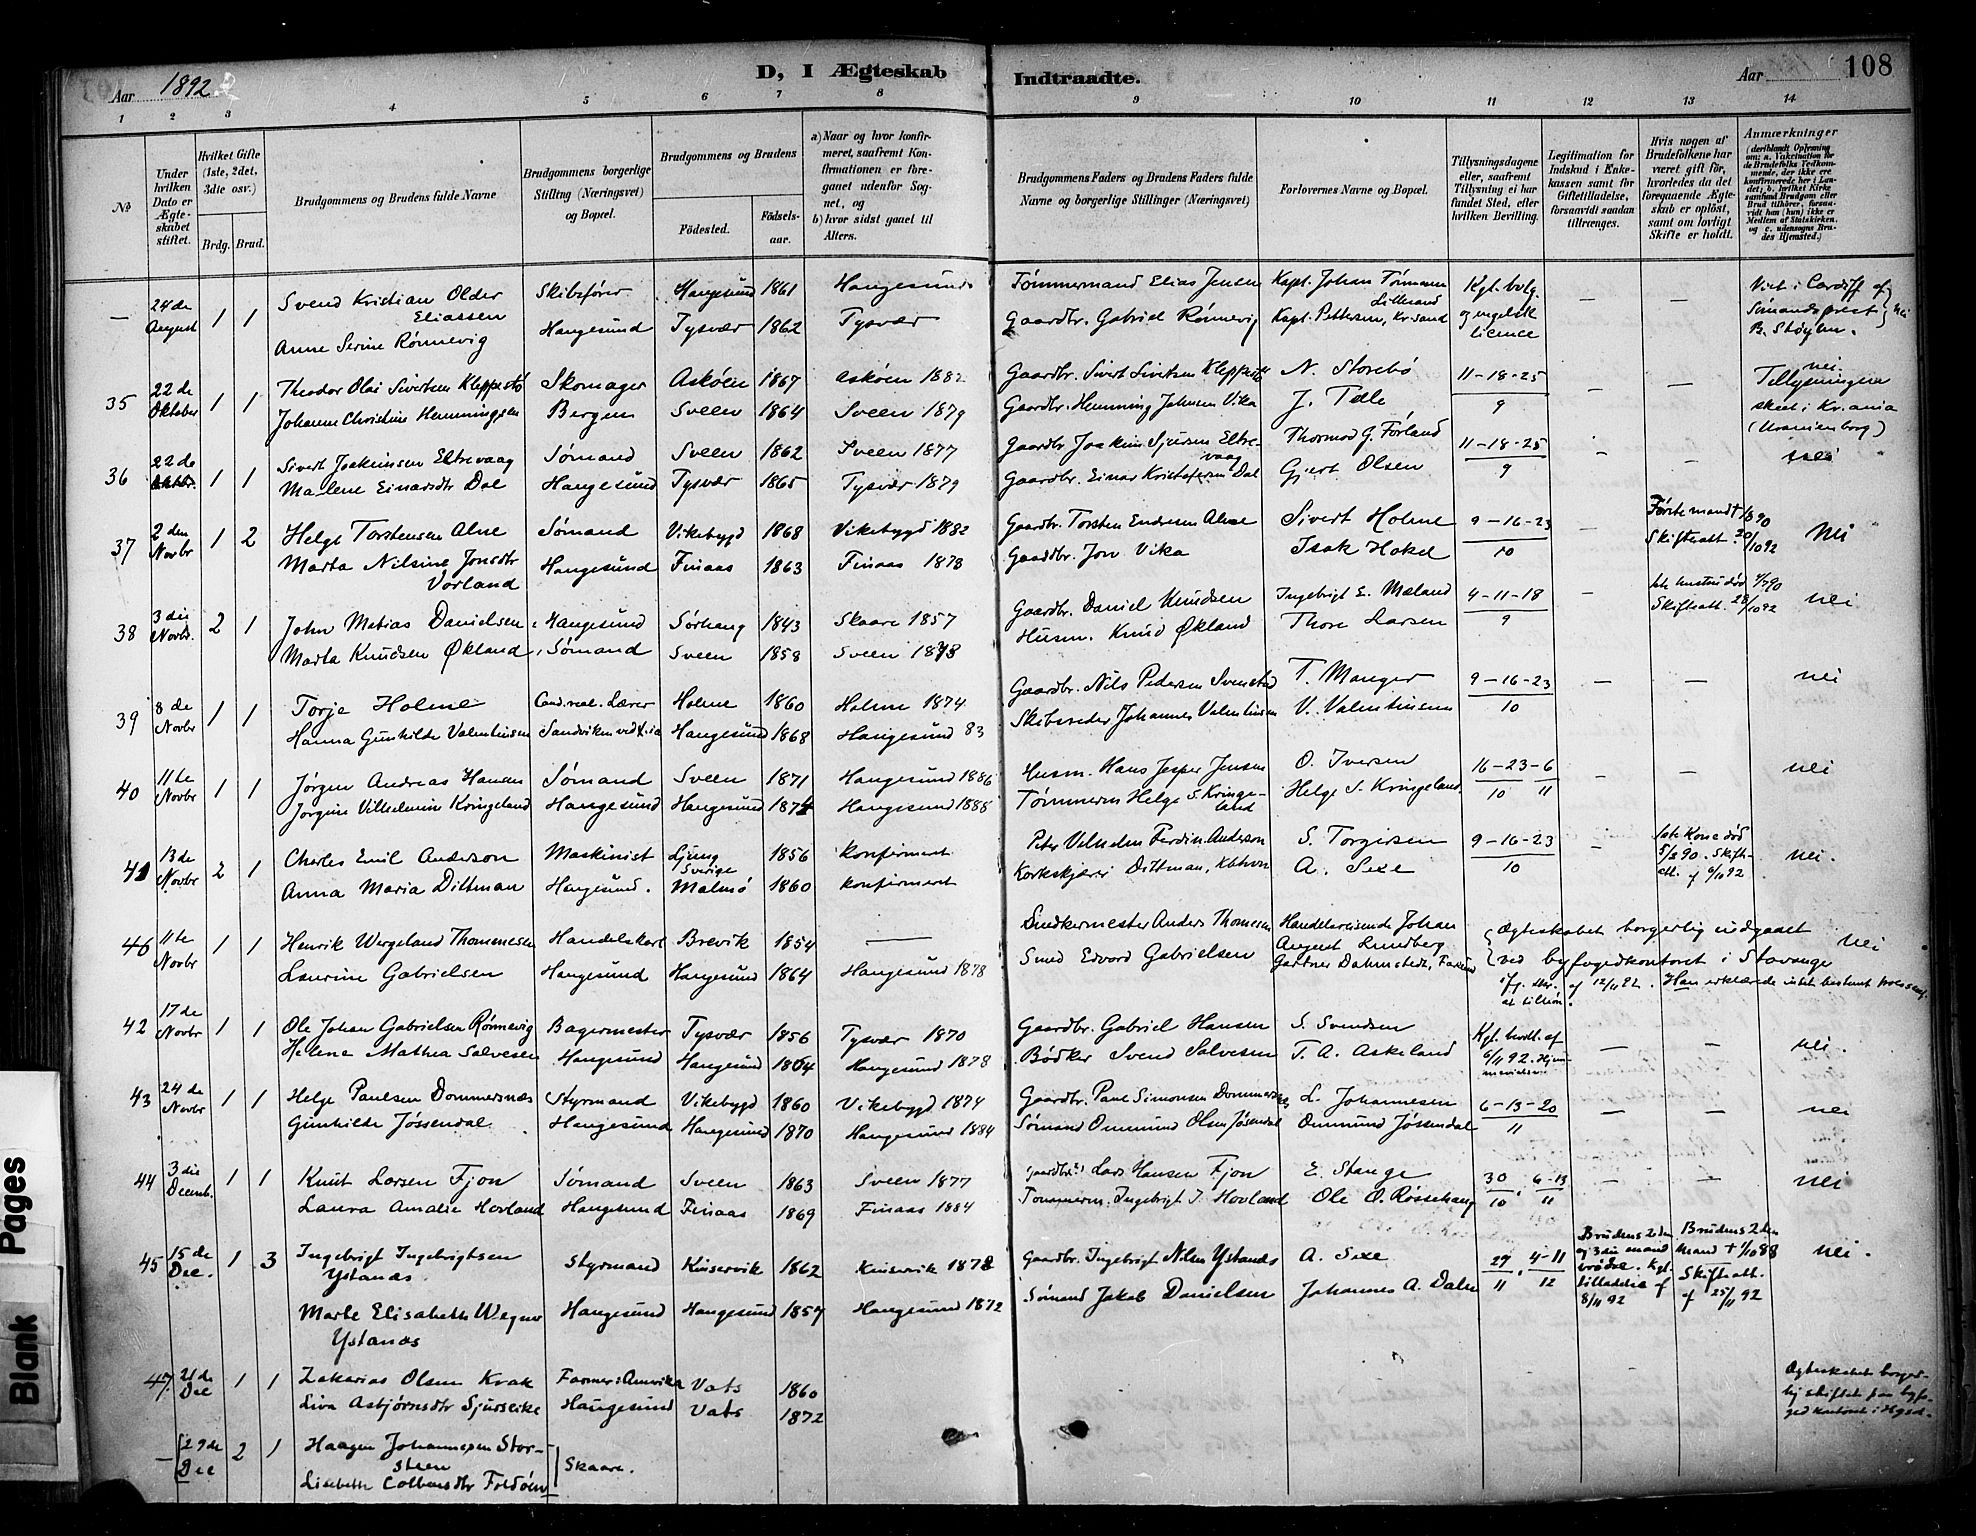 Aar 1892
D, I Ægteskab Indtraadte.
Aar 108
1 2 3 4 5 6 7 8 9 10 11 12 13 14
No
Under hvilken Dato er Ægteskabet stiftet.
Hvilket Gifte (1ste, 2det, 3die osv.)
Brdg. Brud.
Brudgommens og Brudens fulde Navne
Brudgommens borgerlige Stilling (Næringsvei) og Bopæl.
Brudgommens og Brudens
Fødested.
Fødselsaar.
a) Naar og hvor konfirmeret, saafremt Konfirmationen er foregaaet udenfor Sognet, og
b) hvor sidst gaaet til Alters.
Brudgommens Faders og Brudens Faders fulde Navne og borgerlige Stillinger (Næringsvei)
Forlovernes Navne og Bopæl.
Tillysningsdagene eller, saafremt Tillysning ei har fundet Sted, efter hvilken Bevilling.
Legitimation for Indskud i Enkekassen samt for Giftetilladelse, forsaavidt saadan tiltrænges.
Hvis nogen af Brudefolkene har været gift før, hvorledes da det foregaaende Ægteskab er opløst, samt om lovligt Skifte er holdt.
Anmærkninger
(deriblandt Oplysning om: a. Vaccination for de Brudefolks Vedkommende, der ikke ere konfirmerede her i Landet; b. hvilket Kirkesamfund Brudgom eller Brud tilhører, forsaavidt han (hun) ikke er Medlem af Statskirken, og c. udensogns Brudes Hjemsted.)
— 24de August 1 1 Svend Kristian Older Eliassen Skibsfører Haugesund 1861 Haugesund Tømmermand Elias Jensen Kapt. Johan Tønnesen Lillesand Kgl. belg. — — Viet i Cardiff af
Anne Serine Rønnevig Haugesund Tysvær 1862 Tysvær Gaardbr. Gabriel Rønnevig Kapt. Pettersen, Kr.sand og engelsk licence Sømandsprest B. Støylen. nei
35 22de Oktober 1 1 Theodor Olai Sivertsen Kleppestø Skomager Askøen 1867 Askøen 1882 Gaardbr. Sivert Sivertsen Kleppestø N. Storebø 11-18-25 — — nei. Tillysningen
Johanne Christine Hemmingsen Bergen Sveen 1864 Sveen 1879 Gaardbr. Hemming Johnsen Vika J. Tele 9 skeet i Kr.ania (Uranienborg)
36 22de Oktbr. 1 1 Sivert Joakimsen Eltrevaag Sømand Sveen 1862 Sveen 1877 Gaardbr Joakim Sjursen Eltrevaag Thormod G. Førland 11-18-25 — — nei
Marlene Einarsdtr Dal Haugesund Tysvær 1865 Tysvær 1879 Gaardbr. Einar Kristofersen Dal Gjert Olsen 9
37 2den Novbr 1 2 Helge Torstensen Alne Sømand Vikebygd 1868 Vikebygd 1882 Gaardbr. Torsten Endresen Alne Sivert Holme 9-16-23 — Første mand † 90 nei
Marta Nilsine Jonsdtr Vorland Haugesund Finaas 1863 Finaas 1878 Gaardbr. Jon Vika Isak Hokel 10 Skifteatt. 20/10 92
38 3die Novbr. 2 1 John Matias Danielsen Haugesund Sørhaug 1843 Skaare 1857 Gaardbr. Daniel Knudsen Ingebrigt E. Mæland 4-11-18 — 1ste hustru død 90 nei
Marta Knudsen Økland Sømand Sveen 1858 Sveen 1873 Husm. Knud Økland Thore Larsen 9 Skifteatt. 28/10 92
39 8de Novbr 1 1 Torje Holme Cand. real. Lærer Holme 1860 Holme 1874 Gaardbr. Nils Pedersen Svenstad T. Manger 9-16-23 — — nei
Hanna Gunhilde Valentinsen Sandviken ved Kr.ia Haugesund 1868 Haugesund 83 Skibsreder Johannes Valentinsen V. Valentinsen 10
40 11te Novbr 1 1 Jørgen Andreas Hansen Sømand Sveen 1871 Haugesund 1886 Husm. Hans Jesper Jensen O. Iversen 16-23-6 — — nei
Jørgine Vilhelmine Kringeland Haugesund Haugesund 1874 Haugesund 1888 Tømmerm Helge S. Kringeland Helge S. Kringeland. 10 11
41 13de Novbr 2 1 Charles Emil Anderson Maskinist Ljung Sverige 1856 konfirmeret Peter Vilhelm Ferdin. Anderson S. Torgersen 9-16-23 — 1ste Kone død 5/2 90. Skifteatt. af 6/11 92 nei.
Anna Maria Dittman Haugesund. Malmø 1860 konfirmeret Korkskjærer Dittman, Kbhvn A. Sexe 10
46 11te Novbr 1 1 Henrik Wergeland Thommesen Handelskarl Brevik 1854 — Snedkermester Anders Thomesen Handelsreisende Johan August Lundberg Ægteskabet borgerlig indgaaet nei
Laurine Gabrielsen Haugesund Haugesund 1864 Haugesund 1878 Smed Edvard Gabrielsen Gartner Dahmstedt, ved byfogedkontoret i Stavanger
ifg. Skr. af 12/11 92. Han erklærede intet bestemt trossamf. at tilhøre.
42 17de Novbr 1 1 Ole Johan Gabrielsen Rønnevig Bagermester Tysvær 1856 Tysvær 1870 Gaardbr. Gabriel Hansen S. Svendsen Kgl. bevil. af — — nei.
Helene Mathea Salvesen Haugesund Haugesund 1864 Haugesund 1878 Bødker Svend Salvesen T. A. Askeland 6/11 92.
43 24de Novbr 1 1 Helge Paulsen Dommersnæs Styrmand Vikebygd 1860 Vikebygd 1874 Gaardbr. Paul Simonsen Dommersnes L. Johannesen 6-13-20 — — nei
Gunhilde Jøssendal Haugesund Haugesund 1870 Haugesund 1884 Sømand Ommund Olsen Jøsendal Ommund Jøssendal 11
44 3die Decemb. 1 1 Knut Larsen Fjon Sømand Sveen 1863 Sveen 1877 Gaardbr. Lars Hansen Fjon E. Stange 30 . 6-13 — — nei
Laura Amalie Hovland Haugesund Finaas 1869 Finaas 1884 Tømmerm. Ingebrigt J. Hovland Ole O. Røssehaug 10 11
45 15de Dec. 1 3 Ingebrigt Ingebrigtsen Ystanæs Styrmand Kinservik 1862 Kinservik 1878 Gaardbr. Ingebrigt Nilsen Ystanæs A. Sexe 27 . 4-11 Brudens 2den og 3die mand brødre. Kgl. tilladelse af 8/11 92 Brudens 2den Mand † 1/10 88 Skifteatt. af 25/11 92 nei.
Marte Elisabeth Wegner Ystanæs Haugesund Haugesund 1857 Haugesund 1872 Sømand Jakob Danielsen Johannes A. Dale 11 12
47. 21de Dec 1 1 Zakarias Olsen Krak Farmer i Amerika Vats 1860 Ægteskabet borgerlig stiftet paa byfogedkontoret i Hgsd.
Liva Asbjørnsdtr Sjurseike Haugesund Vats 1872
— 29de Dec 2 1 Haagen Johannesen Storsteen Skaare.
Lisebeth Colbensdtr Foldøen
Blank Pages